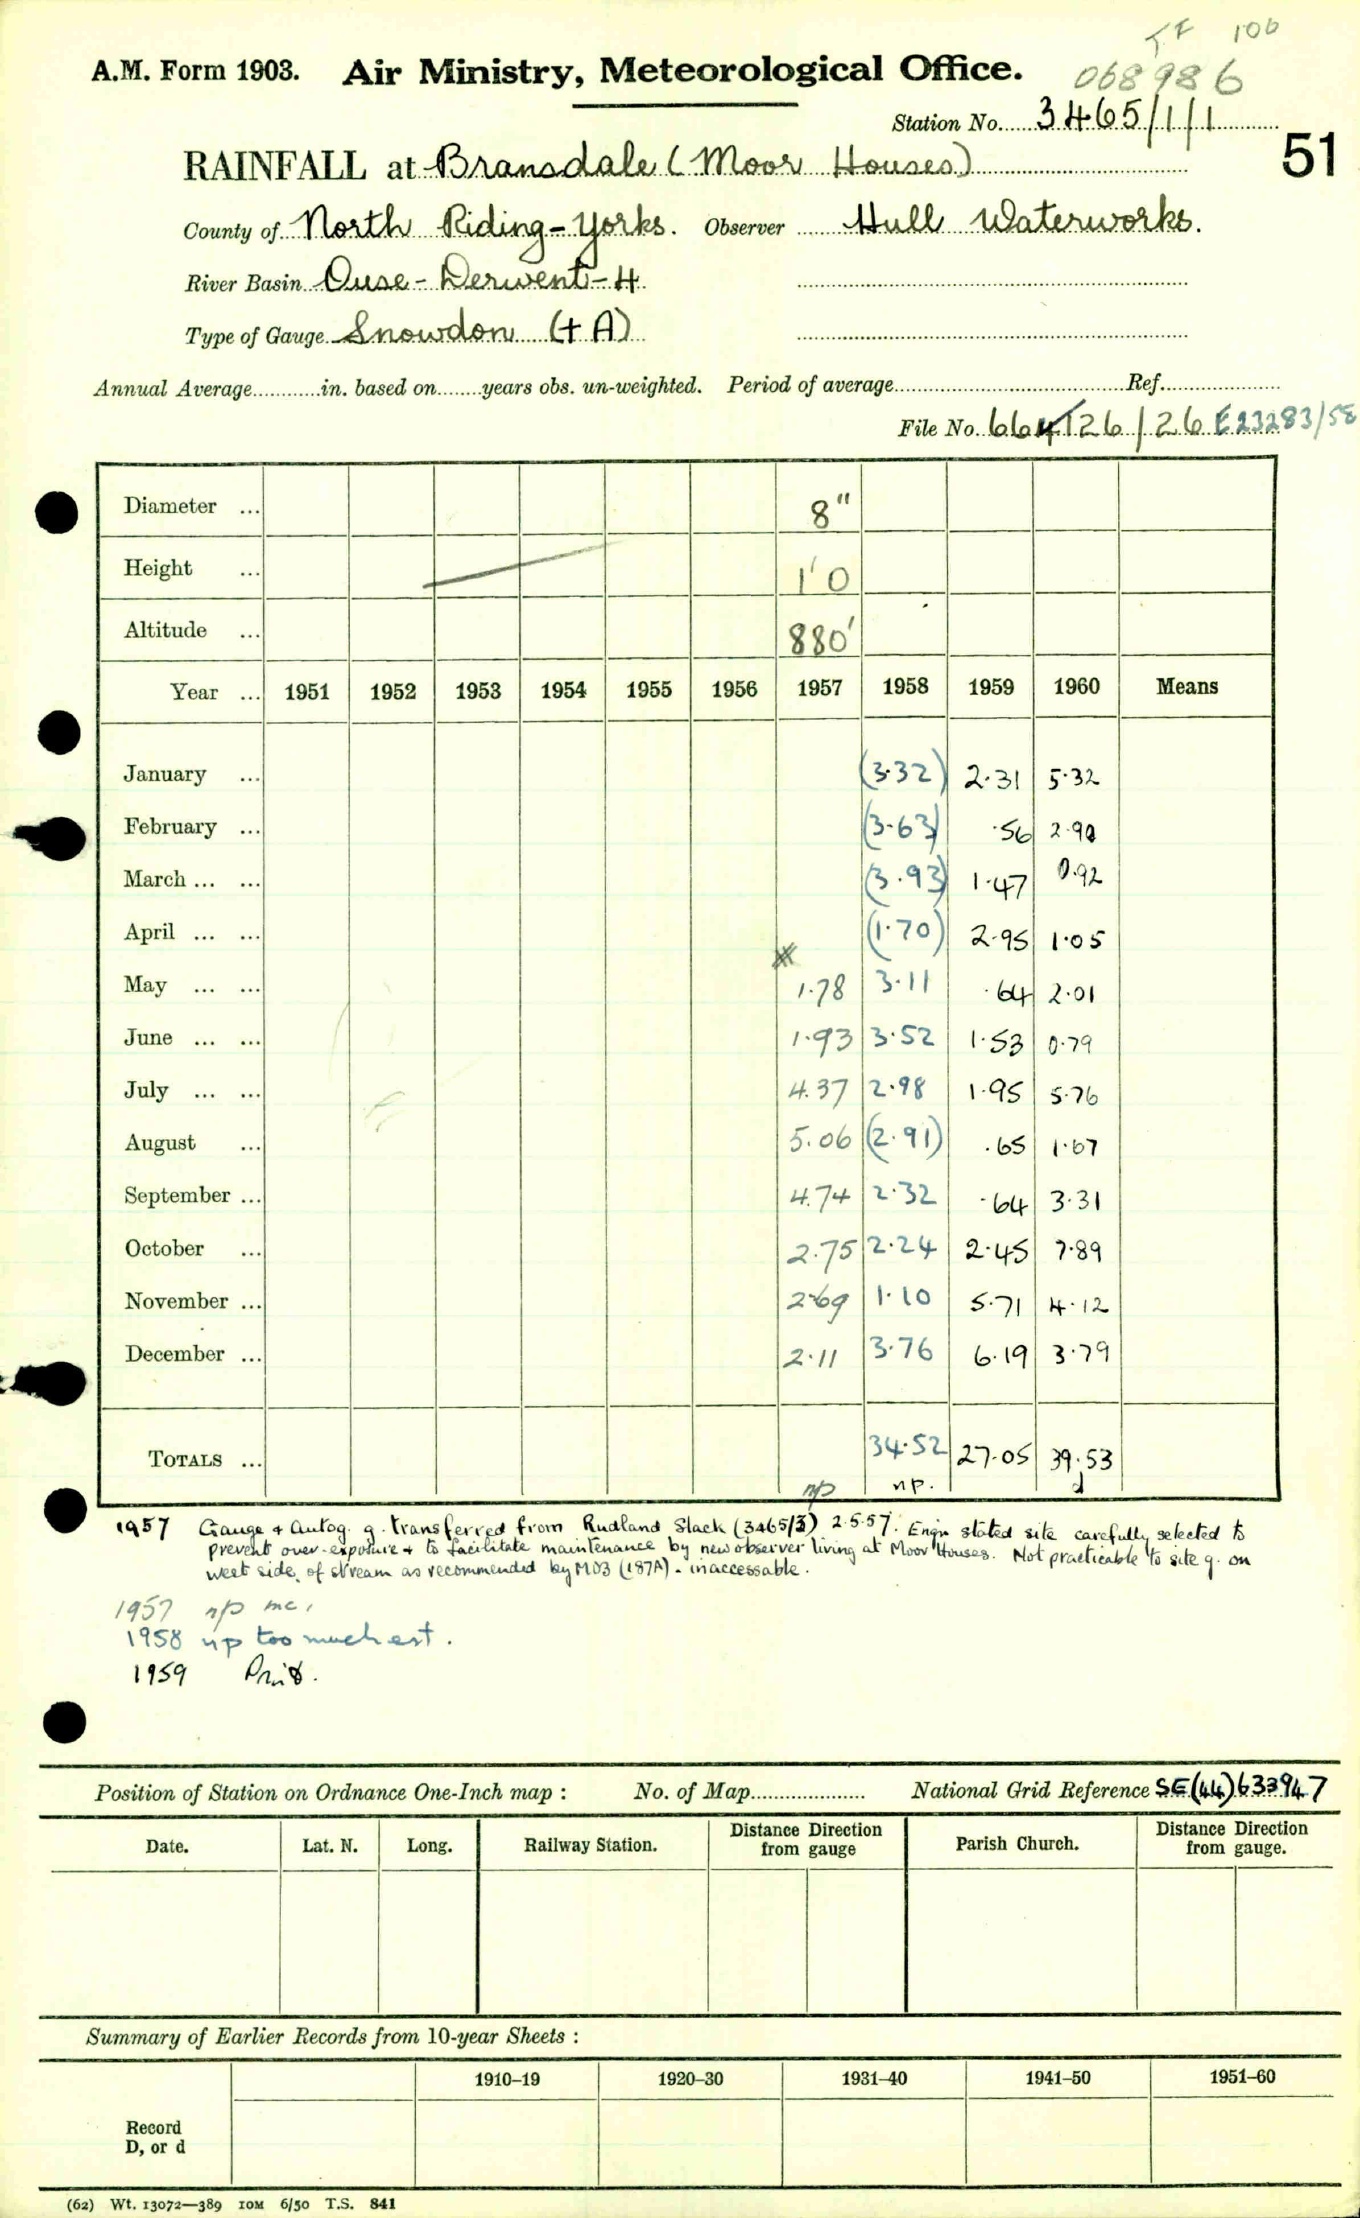 T F 106
A.M. Form 1903. Air Ministry, Meteorological Office. 068986
Station No. 3465/1/1
51
RAINFALL at Bransdale (Moor Houses)
County of North Riding - Yorks. Observer Hull Waterworks.
River Basin Ouse - Derwent - 4
Type of Gauge Snowdon (+ A)
Annual Average............in. based on........years obs. un-weighted. Period of average.......... Ref..........
File No. 664126/26 E23283/58
Diameter ... 8"
Height ... 1'0
Altitude ... 880'
Year ... 1951 1952 1953 1954 1955 1956 1957 1958 1959 1960 Means
January ... (3.32) 2.31 5.32
February ... (3.63) .56 2.90
March ... ... (3.93) 1.47 0.92
April ... ... (1.70) 2.95 1.05
May ... ... 1.78 3.11 .64 2.01
June ... ... 1.93 3.52 1.53 0.79
July ... ... 4.37 2.98 1.95 5.76
August ... 5.06 (2.91) .65 1.67
September ... 4.74 2.32 .64 3.31
October ... 2.75 2.24 2.45 7.89
November ... 2.69 1.10 5.71 4.12
December ... 2.11 3.76 6.19 3.79
TOTALS ... 34.52 27.05 39.53
np np. d
1957 Gauge & Autog. g. transferred from Rudland Slack (3465/3) 2.5.57. Engr stated site carefully selected to
prevent over-exposure & to facilitate maintenance by new observer living at Moor Houses. Not practicable to site g. on
west side of stream as recommended by MO3 (187A) - inaccessable.
1957 np mc,
1958 np too much est.
1959 Print.
Position of Station on Ordnance One-Inch map : No. of Map.......... National Grid Reference SE(44)633947
Date. Lat. N. Long. Railway Station. Distance Direction from gauge Parish Church. Distance Direction from gauge.
Summary of Earlier Records from 10-year Sheets :
1910–19 1920–30 1931–40 1941–50 1951–60
Record
D, or d
(62) Wt. 13072—389 10M 6/50 T.S. 841